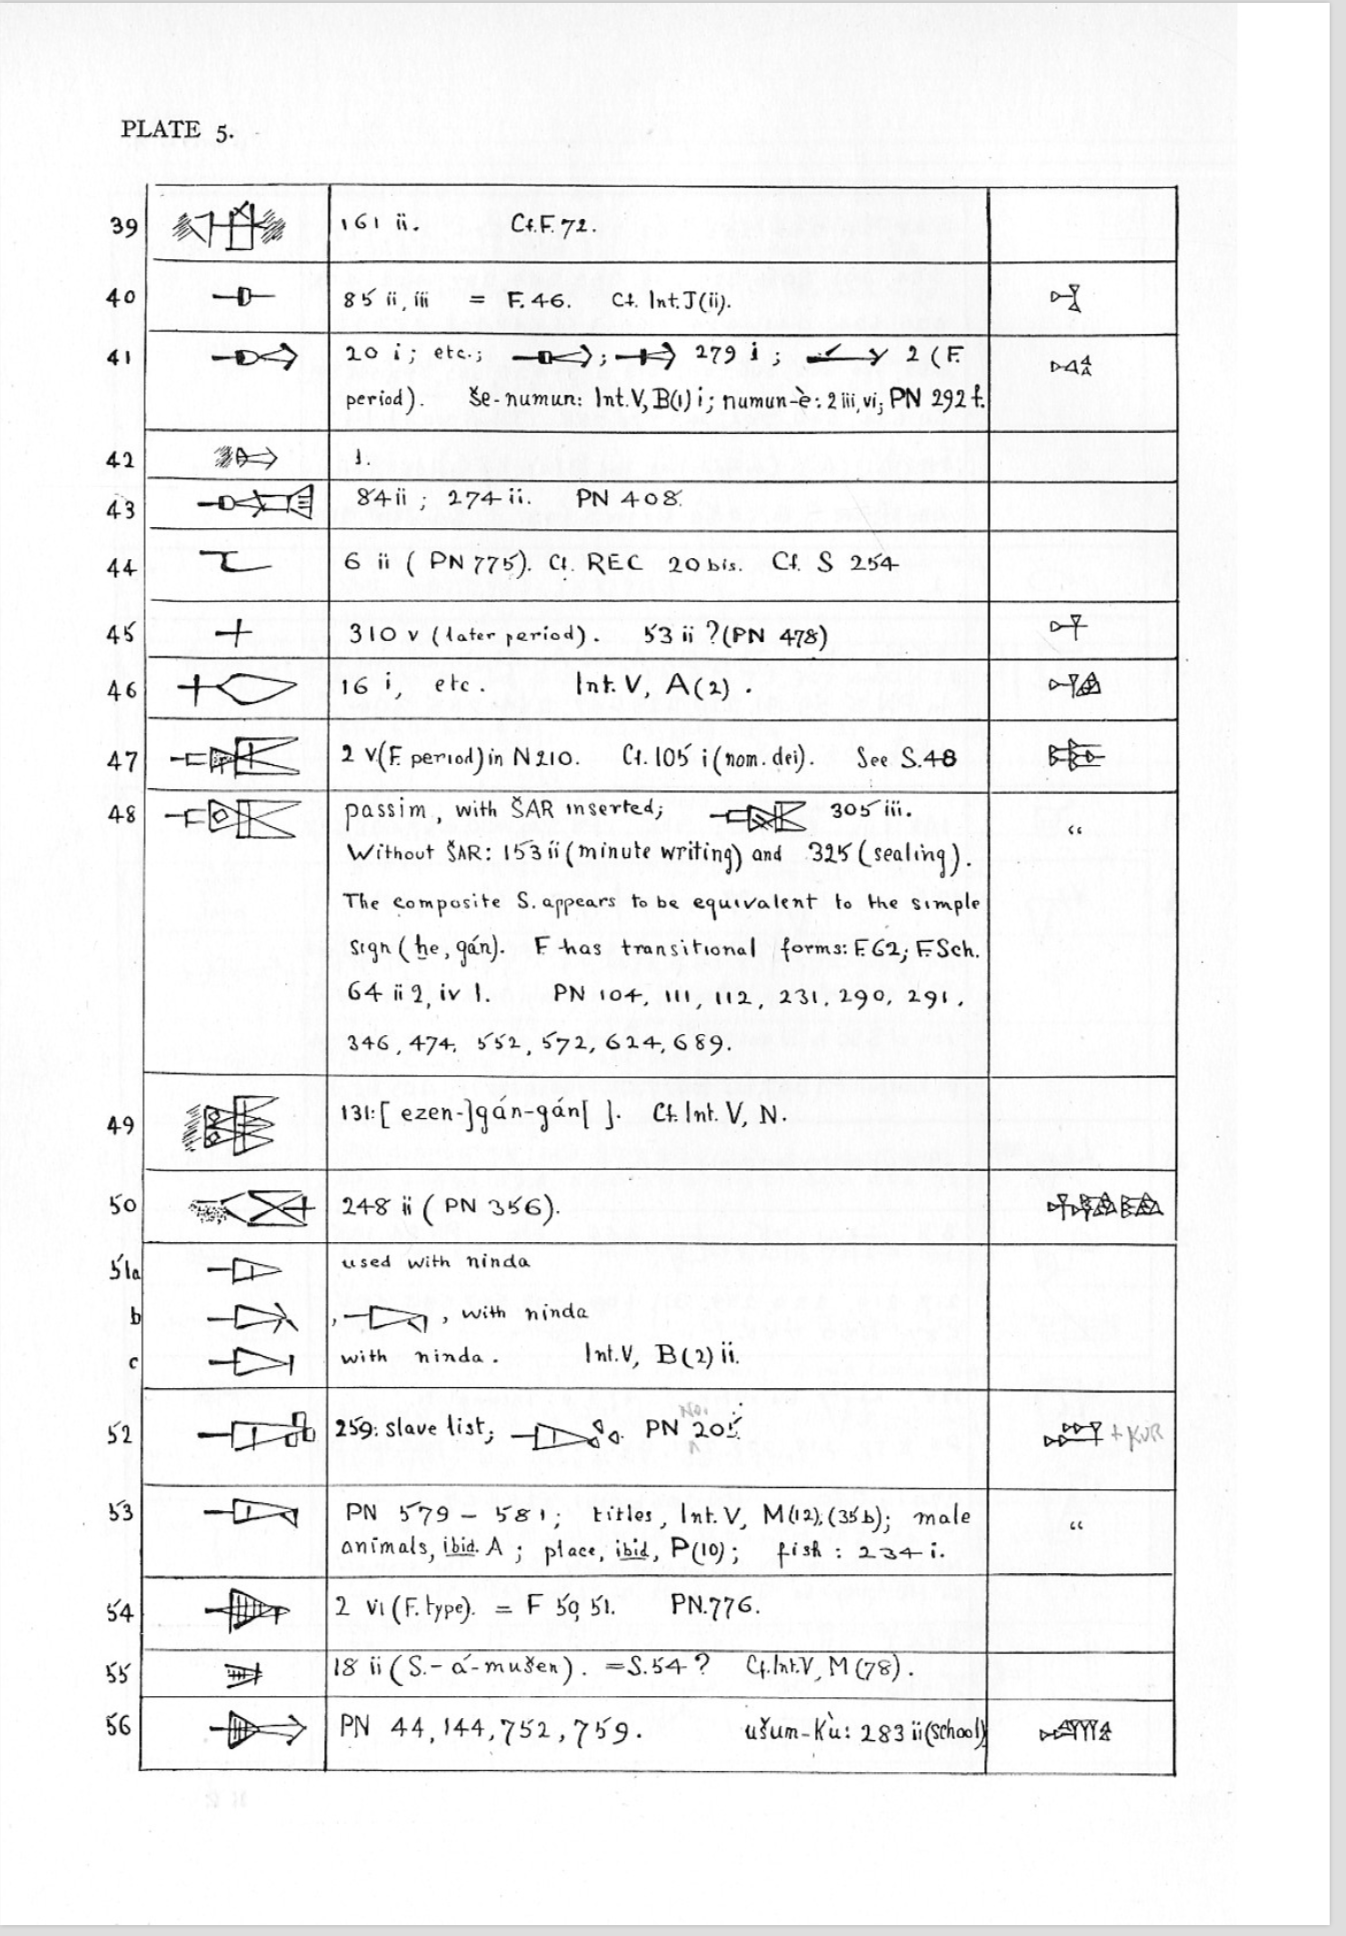 PLATE 5.
39 161 ii. Cf. F. 72.
40 85 ii, iii = F. 46. Cf. Int. J(ii).
41 20 i; etc.; ; 279 i; 2 (F.
period). Še-numun: Int. V, B(1) i; numun-è: 2 iii, vi; PN 292 f.
42 1.
43 84 ii; 274 ii. PN 408.
44 6 ii (PN 775). Cf. REC 20 bis. Cf. S 254
45 310 v (later period). 53 ii ? (PN 478)
46 16 i, etc. Int. V, A(2).
47 2 v (F. period) in N 210. Cf. 105 i (nom. dei). See S. 48
48 passim, with ŠAR inserted; 305 iii. “
Without ŠAR: 153 ii (minute writing) and 325 (sealing).
The composite S. appears to be equivalent to the simple
sign (ḫe, gán). F has transitional forms: F. 62; F. Sch.
64 ii 2, iv 1. PN 104, 111, 112, 231, 290, 291,
346, 474, 552, 572, 624, 689.
49 131: [ezen-]gán-gán[ ]. Cf. Int. V, N.
50 248 ii (PN 356).
51a used with ninda
b , , with ninda
c with ninda. Int. V, B(2) ii.
No.
52 259: slave list; PN 205. + KUR
53 PN 579 – 581; titles, Int. V, M(12), (35b); male “
animals, ibid. A; place, ibid, P(10); fish: 234 i.
54 2 vi (F. type). = F 50, 51. PN. 776.
55 18 ii (S.-á-mušen). = S. 54? Cf. Int. V, M (78).
56 PN 44, 144, 752, 759. ušum-kù: 283 ii (school)